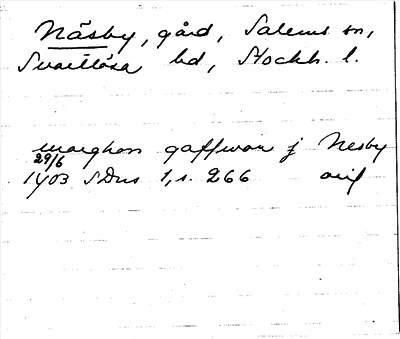 Näsby, gård, Salems sn,
Svartlösa hd, Stockh. l.
marghon gaffwon j Nesby
29/6
1403 SDns 1, s. 266 avs